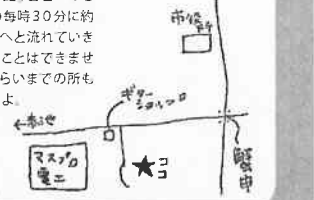 毎時30分に約
へと流れていき
ことはできませ
らいまでの所も
よ。
市役所
ギター
ショップロ
←赤池
マスプロ
電工
★ココ
蟹甲